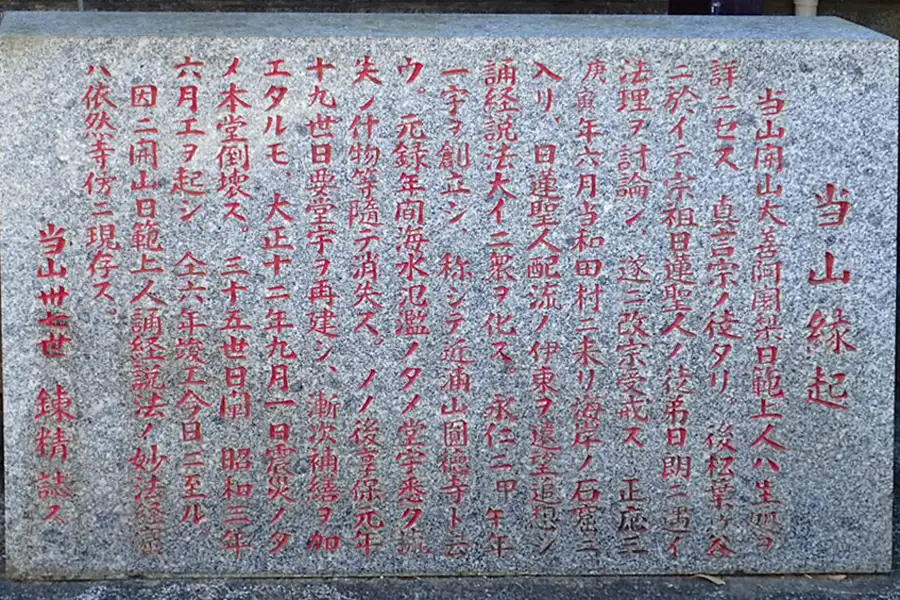 当山縁起
当山開山大善阿闍梨日範上人ハ生処ヲ
詳ニセス 真言宗ノ徒タリ。後松葉ヶ谷
ニ於イテ宗祖日蓮聖人ノ徒弟日朗ニ遇イ
法理ヲ討論シ、遂ニ改宗受戒ス 正応三
庚寅年六月当和田村ニ来リ海岸ノ石窟ニ
入リ、日蓮聖人配流ノ伊東ヲ遠望追想シ
誦経説法大イニ衆ヲ化ス。永仁二甲午年
一宇ヲ創立シ、称シテ近浦山圓徳寺ト云
ウ。元録年間海水氾濫ノタメ堂宇悉ク流
失シ什物等隨テ消失ス。ソノ後享保元年
十九世日要堂宇ヲ再建シ、漸次補繕ヲ加
エタルモ、大正十二年九月一日震災ノタ
メ本堂倒壊ス。三十五世日闡 昭和三年
六月工ヲ起シ 仝六年竣工今日ニ至ル。
因ニ開山日範上人誦経説法ノ妙法経窟
ハ依然寺傍ニ現存ス。
当山丗七世 錬精誌ス